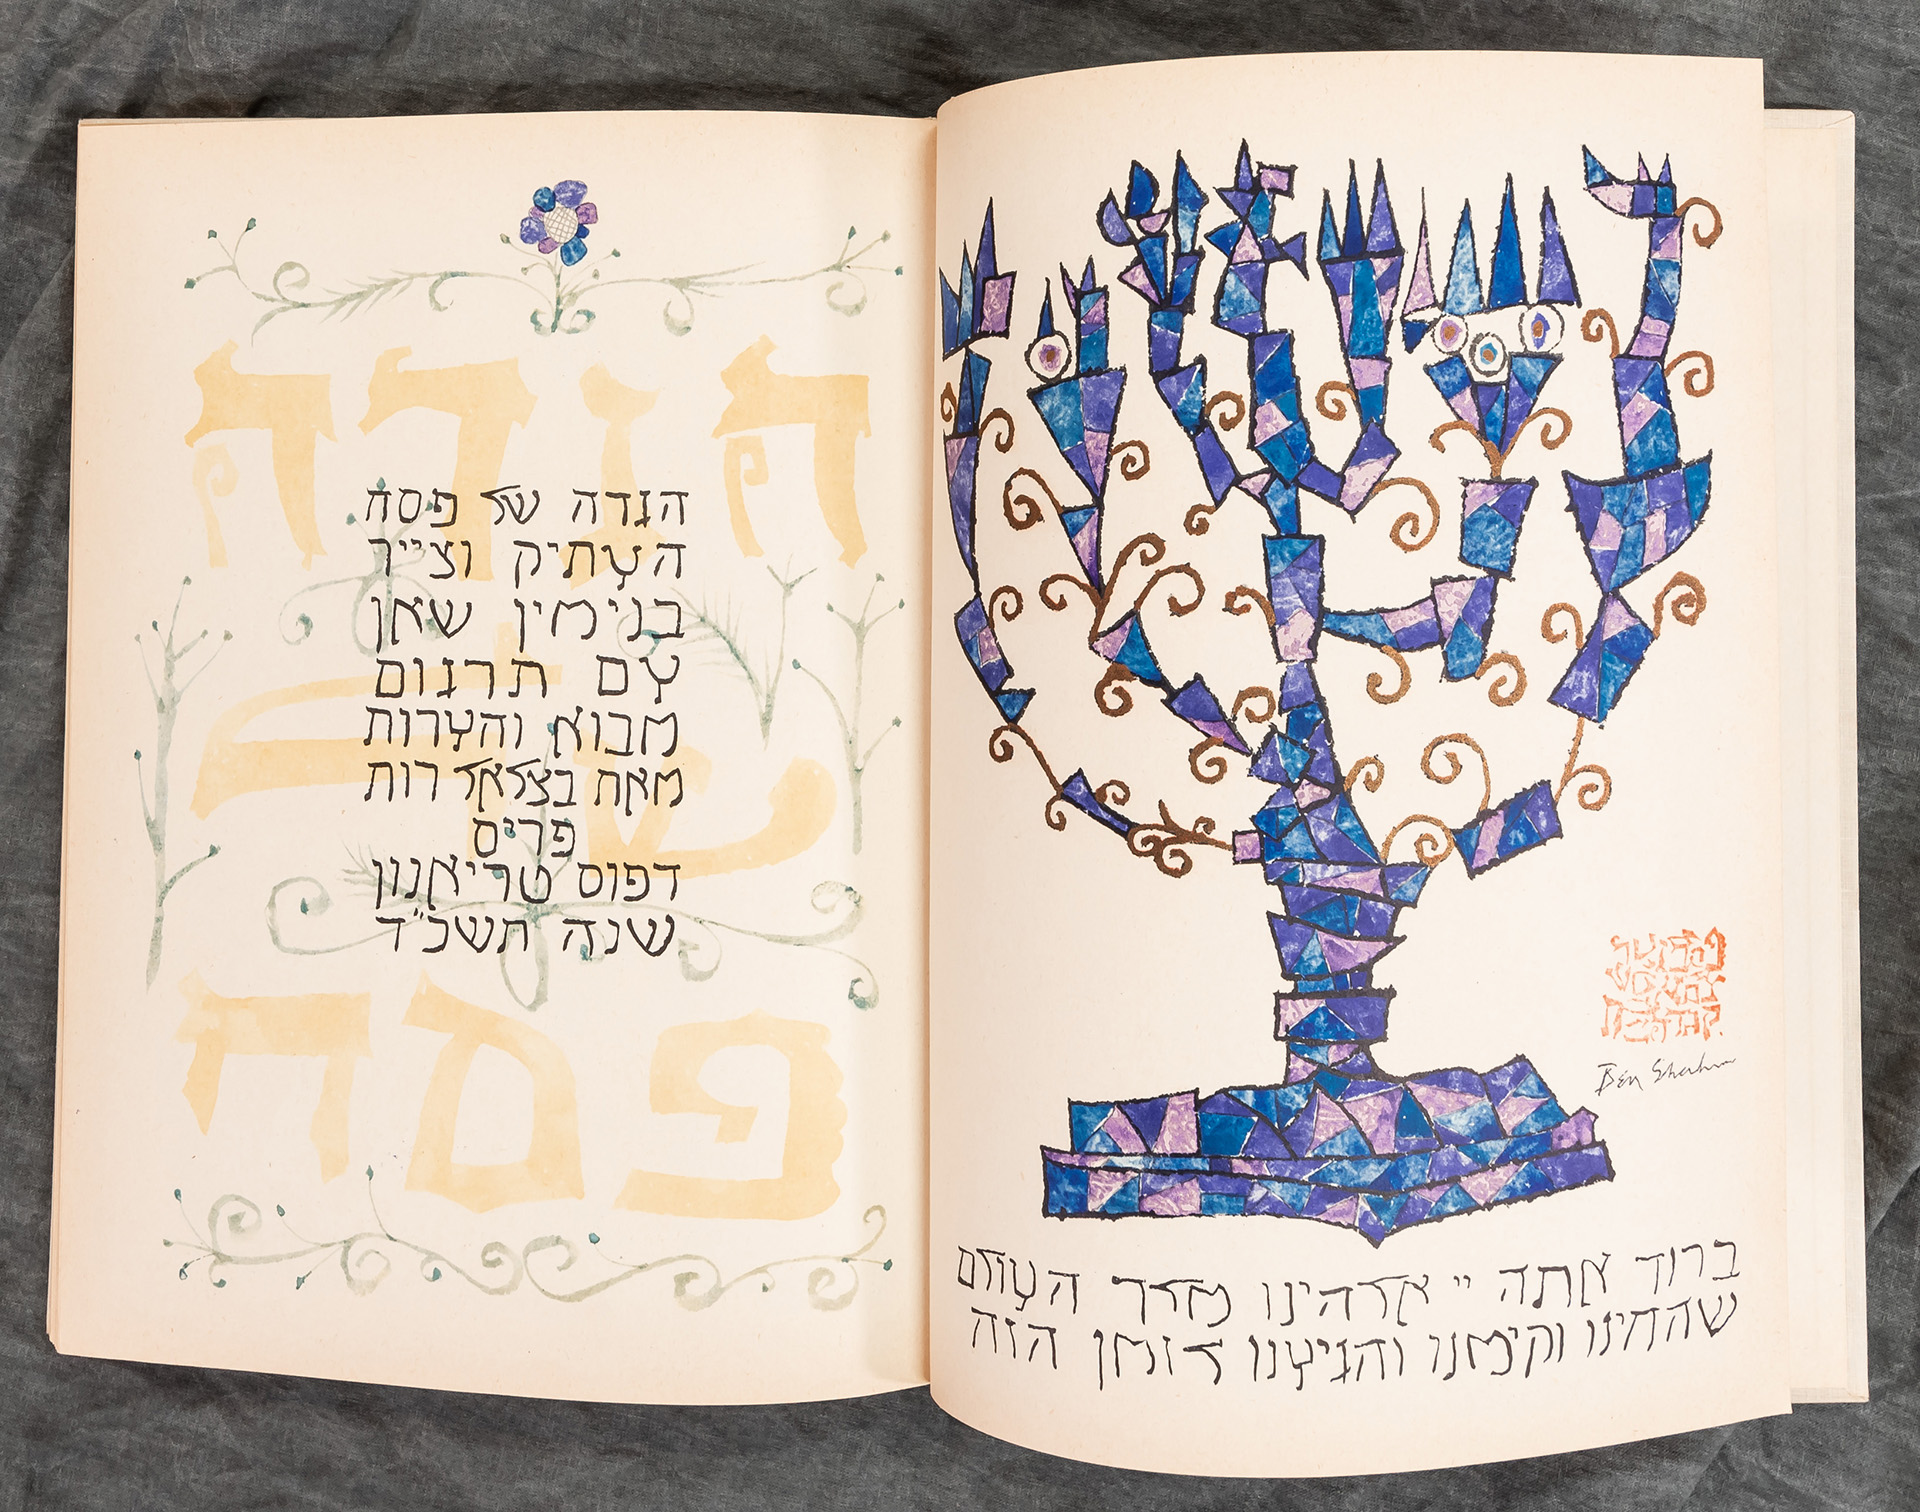 הגדה
של
פסח
הגדה של פסח
העתיק וצייר
בנימין שאן
עם תרגום
מבוא והערות
מאת בצלאל רות
פריס
דפוס טריאנון
שנה תשכ״ד
ברוך אתה יי אלהינו מלך העולם
שהחינו וקימנו והגיענו לזמן הזה
Ben Shahn